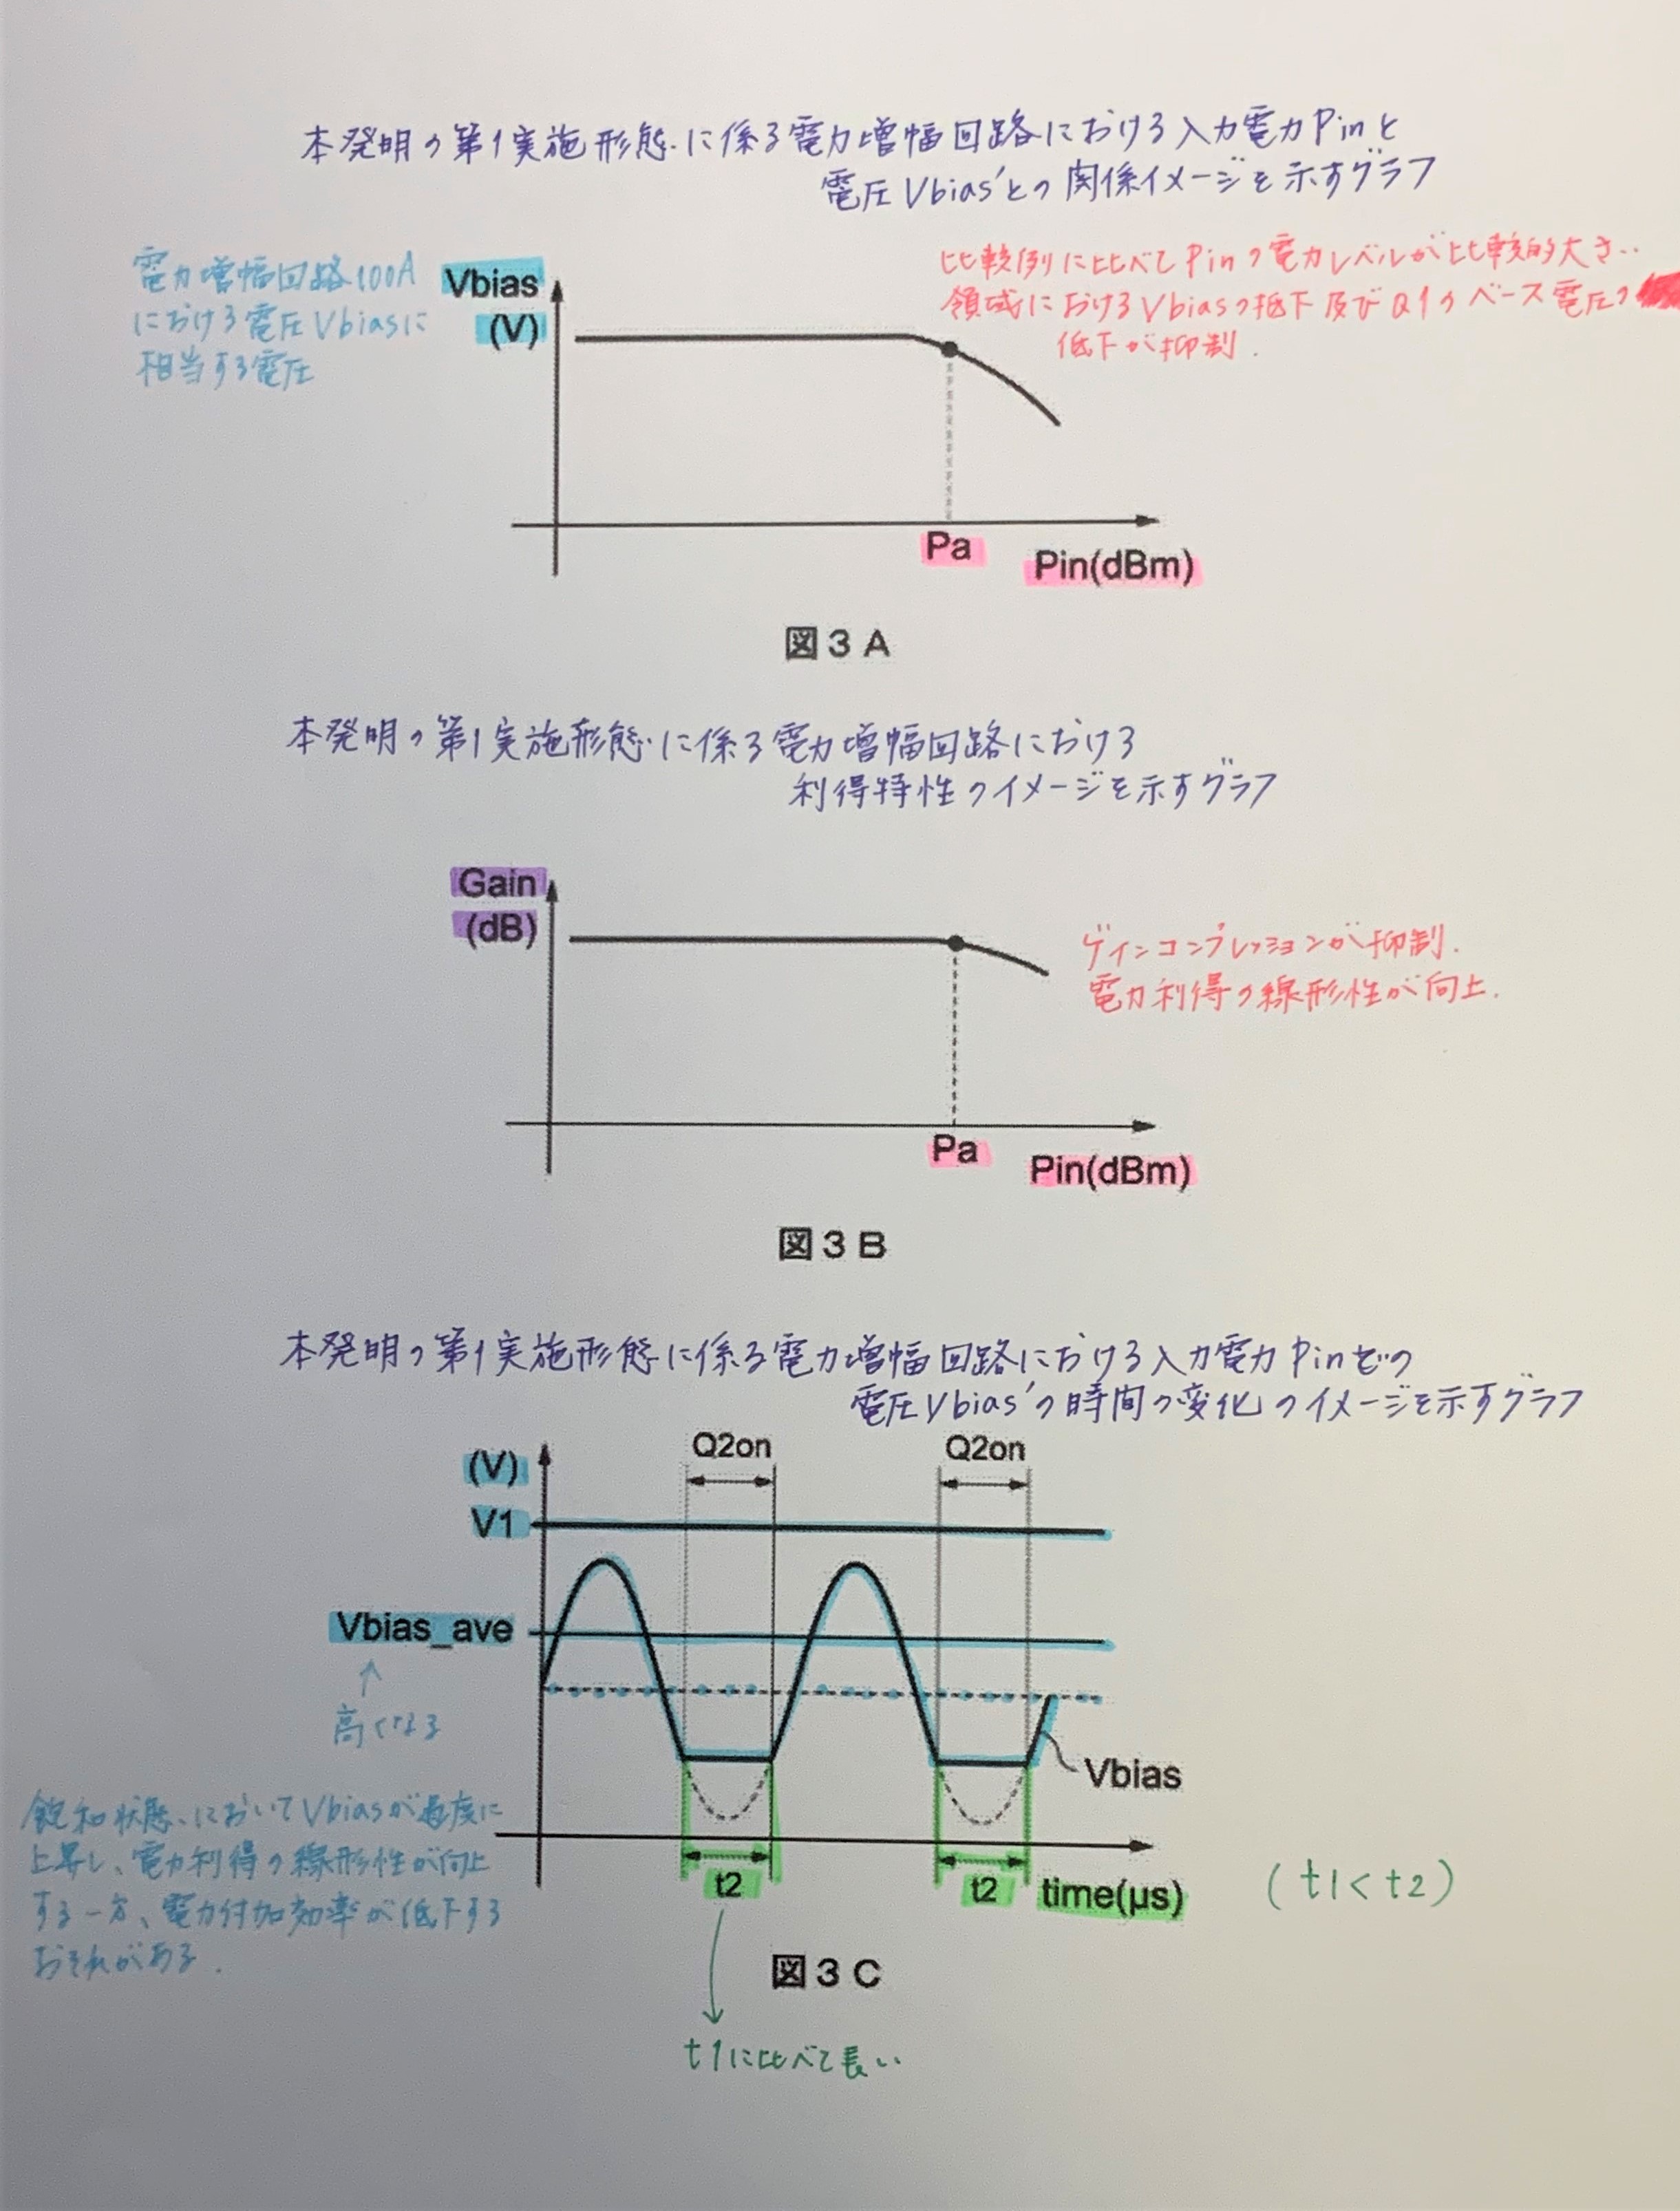 本発明の第1実施形態に係る電力増幅回路における入力電力Pinと
電圧Vbias'との関係イメージを示すグラフ
電力増幅回路100A
における電圧Vbiasに
相当する電圧
比較例に比べてPinの電力レベルが比較的大きい
領域におけるVbiasの低下及びQ1のベース電圧の
低下が抑制.
Vbias
(V)
Pa
Pin(dBm)
図3A
本発明の第1実施形態に係る電力増幅回路における
利得特性のイメージを示すグラフ
Gain
(dB)
ゲインコンプレッションが抑制.
電力利得の線形性が向上.
Pa
Pin(dBm)
図3B
本発明の第1実施形態に係る電力増幅回路における入力電力Pinでの
電圧Vbias'の時間の変化のイメージを示すグラフ
Q2on
Q2on
(V)
V1
Vbias_ave
高くなる
Vbias
飽和状態においてVbiasが過度に
上昇し、電力利得の線形性が向上
する一方、電力付加効率が低下する
おそれがある.
t2
t2
time(μs)
(t1<t2)
図3C
t1に比べて長い